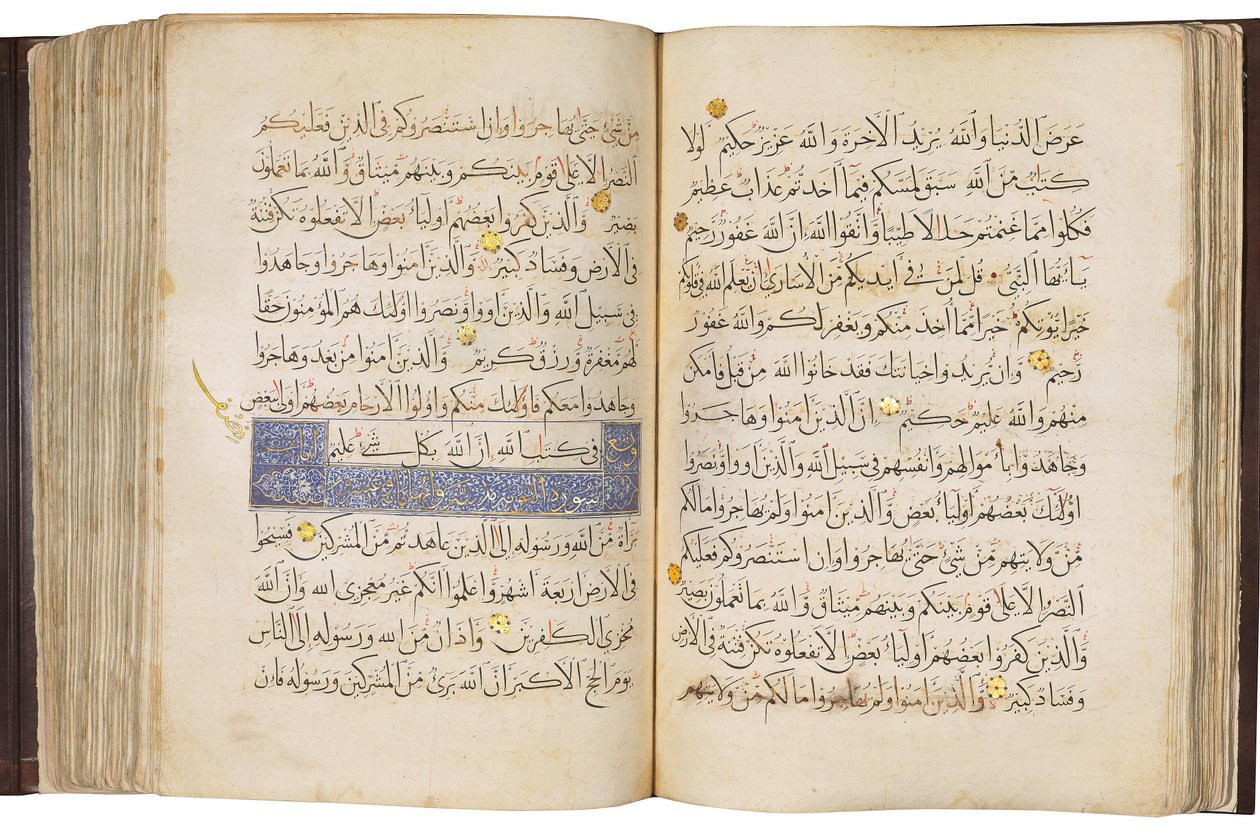 عرض الدنيا والله يريد الآخرة والله عزيز حكيم لولا
كتاب من الله سبق لمسكم فيما أخذتم عذاب عظيم
فكلوا مما غنمتم حلالا طيبا واتقوا الله إن الله غفور رحيم
يا أيها النبي قل لمن في أيديكم من الأسارى إن يعلم الله في قلوبكم
خيرا يؤتكم خيرا مما أخذ منكم ويغفر لكم والله غفور
رحيم وإن يريدوا خيانتك فقد خانوا الله من قبل فأمكن
منهم والله عليم حكيم إن الذين آمنوا وهاجروا
وجاهدوا بأموالهم وأنفسهم في سبيل الله والذين آووا ونصروا
أولئك بعضهم أولياء بعض والذين آمنوا ولم يهاجروا ما لكم
من ولايتهم من شيء حتى يهاجروا وإن استنصروكم فعليكم
النصر إلا على قوم بينكم وبينهم ميثاق والله بما تعملون بصير
والذين كفروا بعضهم أولياء بعض إلا تفعلوه تكن فتنة في الأرض
وفساد كبير والذين آمنوا ولم يهاجروا ما لكم من ولايتهم
من شيء حتى يهاجروا وإن استنصروكم في الدين فعليكم
النصر إلا على قوم بينكم وبينهم ميثاق والله بما تعملون
بصير والذين كفروا بعضهم أولياء بعض إلا تفعلوه تكن فتنة
في الأرض وفساد كبير والذين آمنوا وهاجروا وجاهدوا
في سبيل الله والذين آووا ونصروا أولئك هم المؤمنون حقا
لهم مغفرة ورزق كريم والذين آمنوا من بعد وهاجروا
وجاهدوا معكم فأولئك منكم وأولوا الأرحام بعضهم أولى ببعض
في كتاب الله إن الله بكل شيء عليم
سورة التوبة مدنية
براءة من الله ورسوله إلى الذين عاهدتم من المشركين فسيحوا
في الأرض أربعة أشهر واعلموا أنكم غير معجزي الله وأن الله
مخزي الكافرين وأذان من الله ورسوله إلى الناس
يوم الحج الأكبر أن الله بريء من المشركين ورسوله فإن